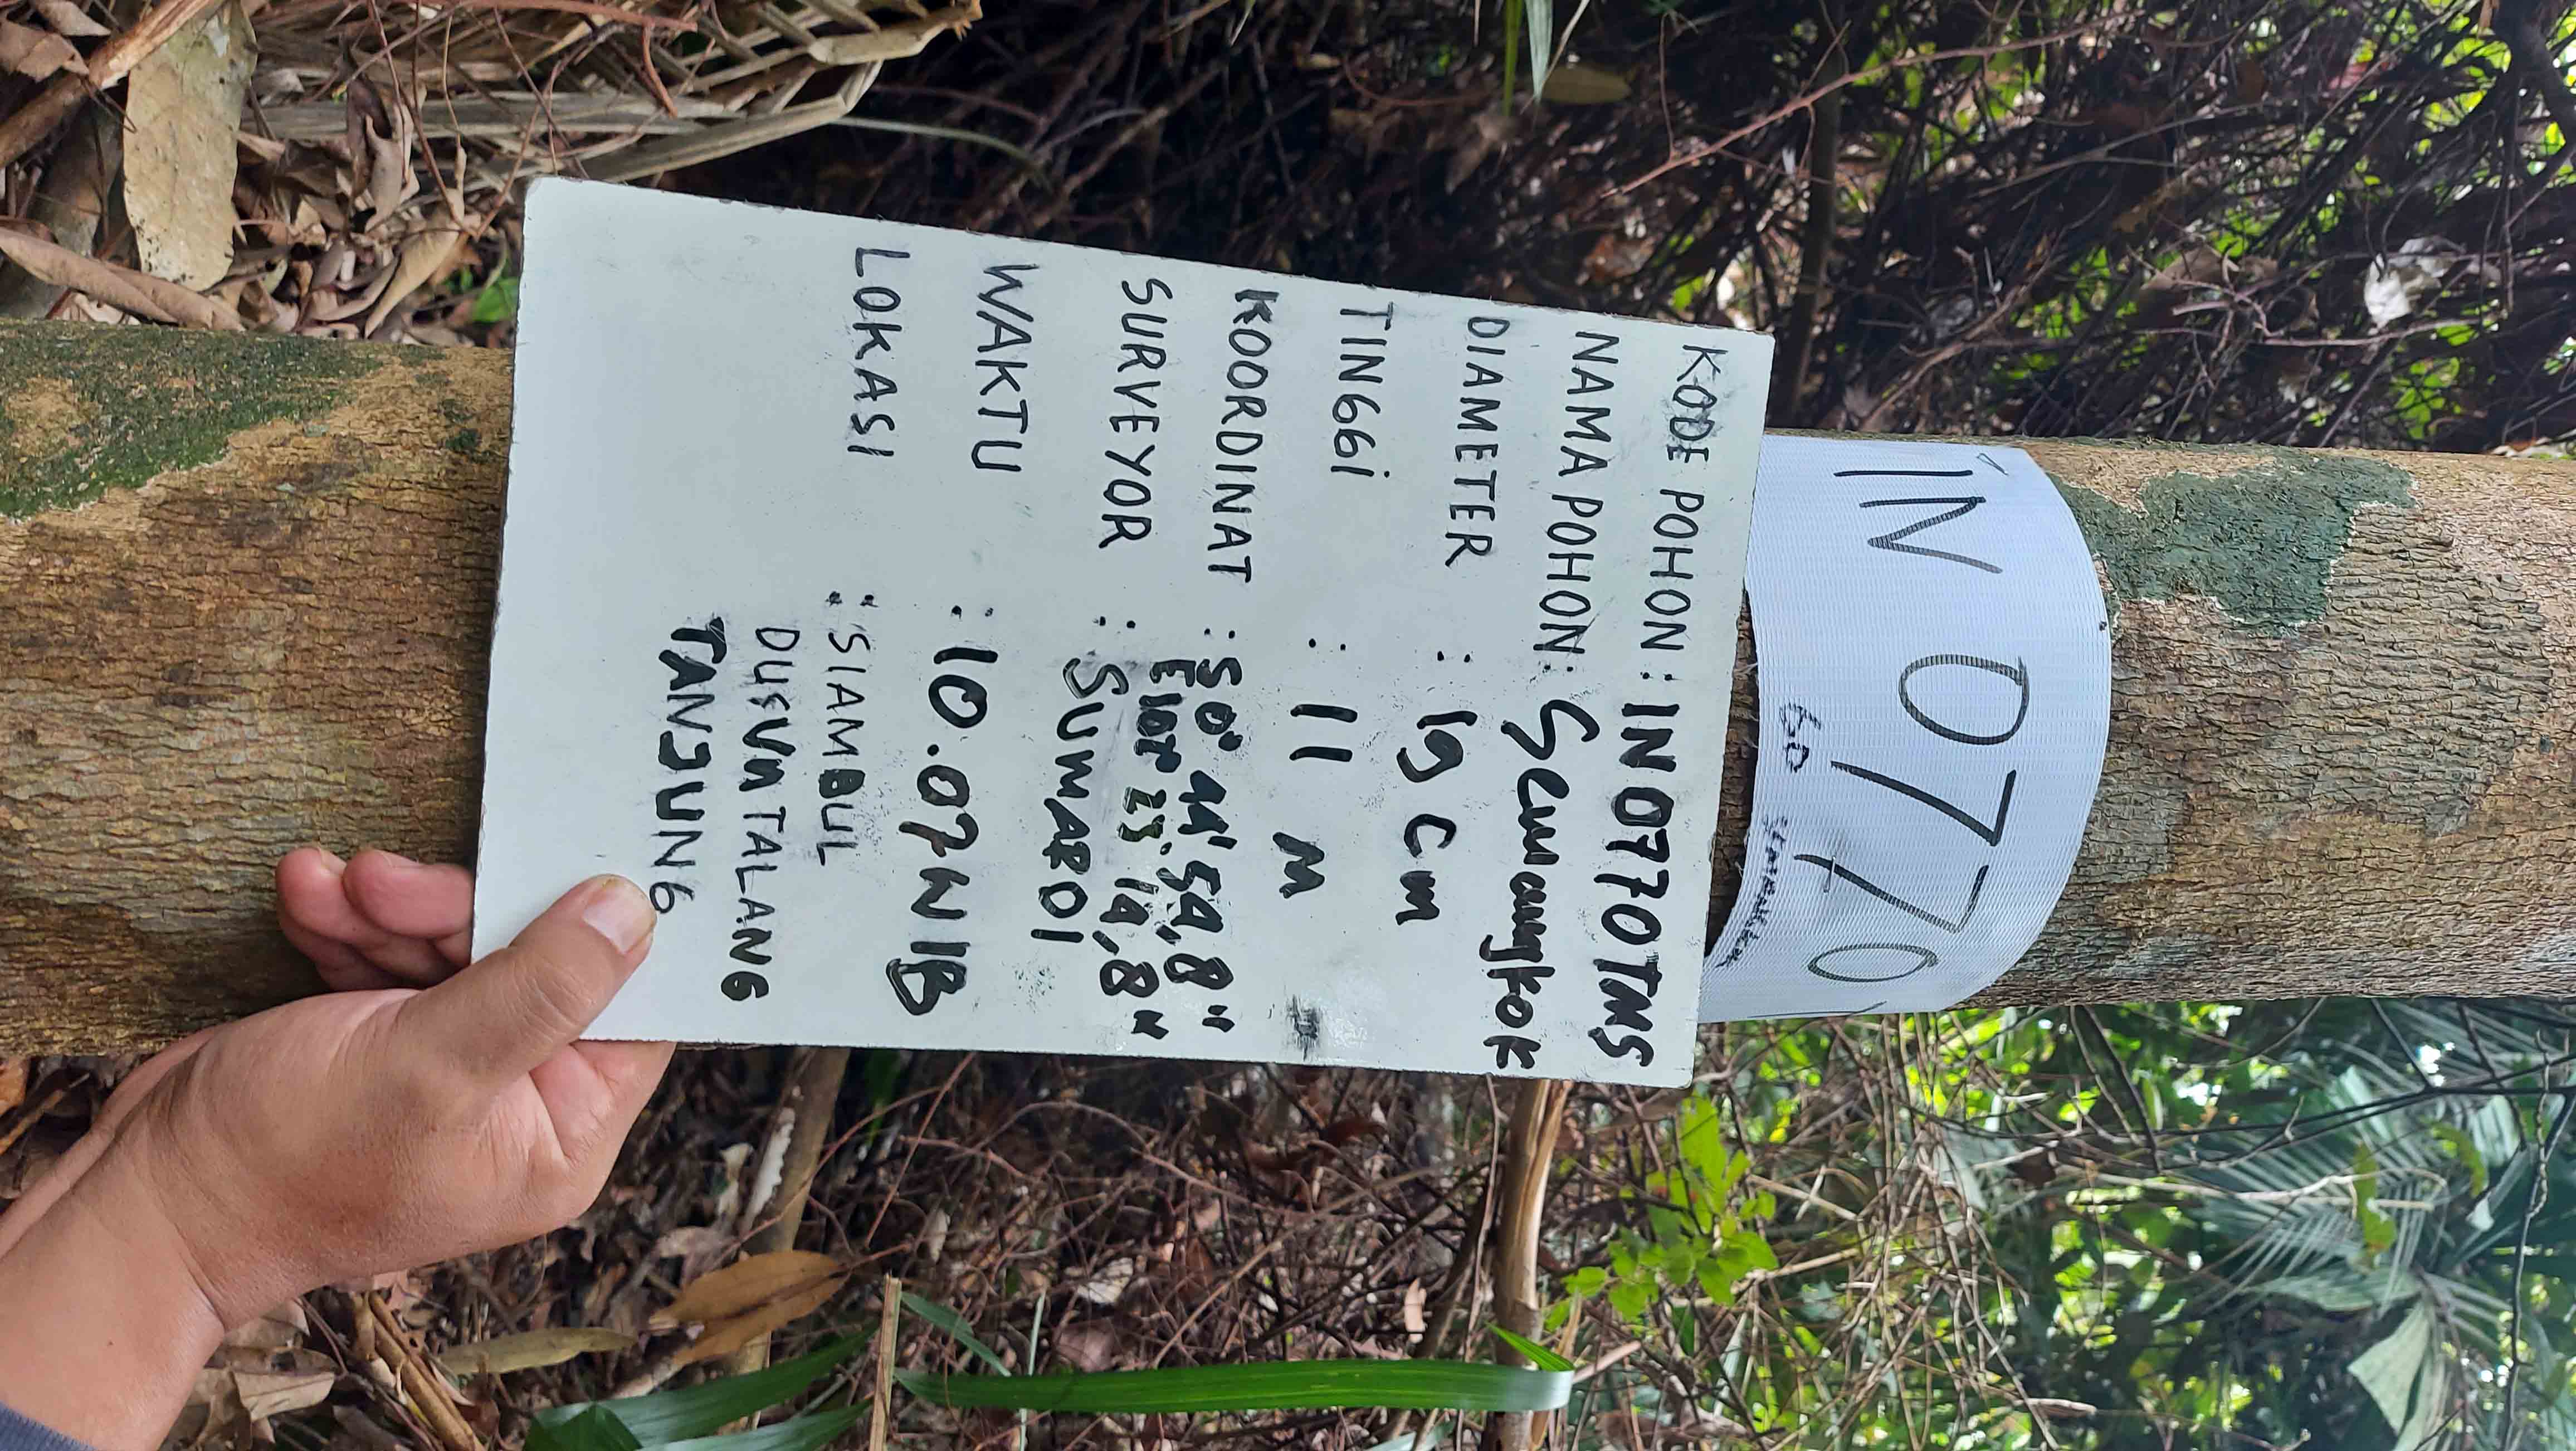 IN 0770
60 SEMANGKOK
KODE POHON : IN 0770 TMS
NAMA POHON : Semangkok
DIAMETER : 19 Cm
TINGGi : 11 M
KOORDINAT : S 0° 44' 54,8"
E 102° 23' 14,8"
SURVEYOR : SUMARDI
WAKTU : 10.07 WIB
LOKASI : SIAMBUL
DUSUN TALANG
TANJUNG